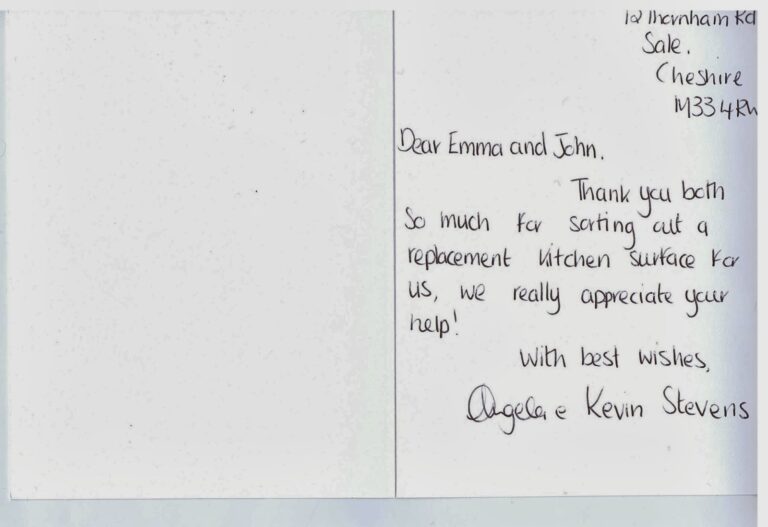 Thornham Rd
Sale.
Cheshire
M33 4R
Dear Emma and John,
Thank you both
So much for sorting out a
replacement kitchen surface for
us, we really appreciate your
help!
With best wishes,
Angela e Kevin Stevens